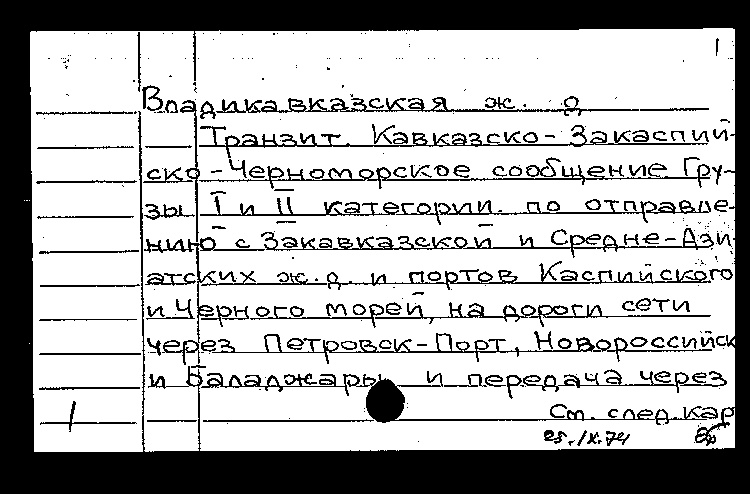 1
Владикавказская ж. д
Транзит. Кавказско-Закаспий-
ско-Черноморское сообщение Гру-
зы I и II категории. по отправле-
нию с Закавказской и Средне-Ази-
атских ж.д. и портов Каспийского
и Черного морей, на дороги сети
через Петровск-Порт, Новороссийск
и Баладжары и передача через
1
См. след. кар
25./IX.74